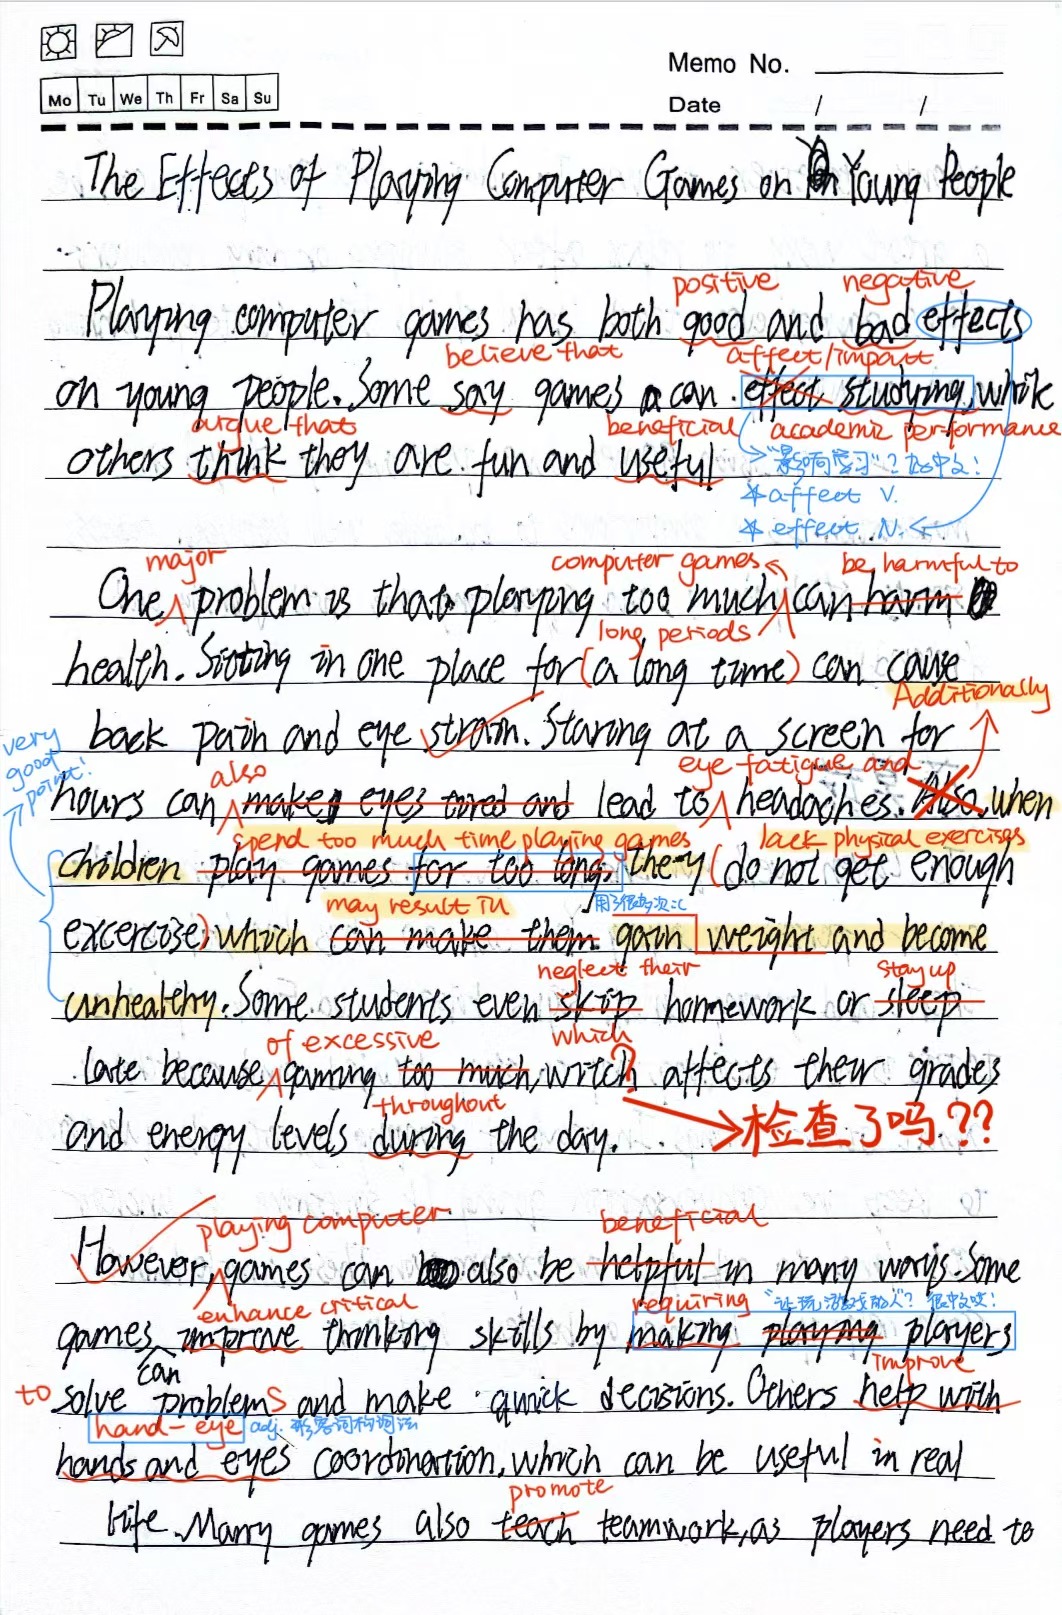 Memo No.
Mo Tu We Th Fr Sa Su
Date / /
The Effects of Playing Computer Games on Young People
positive negative
Playing computer games has both good and bad effects
believe that affect/impact
on young people. Some say games can effect studying, while
argue that beneficial academic performance
others think they are fun and useful
"影响学习"?
*affect v.
*effect N.
major computer games be harmful to
One problem is that playing too much can harm
long periods
health. Sitting in one place for (a long time) can cause
Additionally
back pain and eye strain. Staring at a screen for
very good point!
also eye fatigue and
hours can make eyes tored and lead to headaches. Also, when
spend too much time playing games lack physical exercises
children play games for too long, they (do not get enough
may result in 用了很多次：(
excercise) which can make them gain weight and become
neglect their stay up
unhealthy. Some students even skip homework or sleep
of excessive which
late because gaming too much, witch affects their grades
throughout
and energy levels during the day.
检查了吗??
playing computer beneficial
However, games can also be helpful in many ways. Some
enhance critical requiring "让玩游戏的人"? 很中式!
games improve thinking skills by making playing players
can improve
to solve problems and make quick decisions. Others help with
hand-eye adj. 形容词构词法
hands and eyes coordination, which can be useful in real
promote
life. Many games also teach teamwork, as players need to